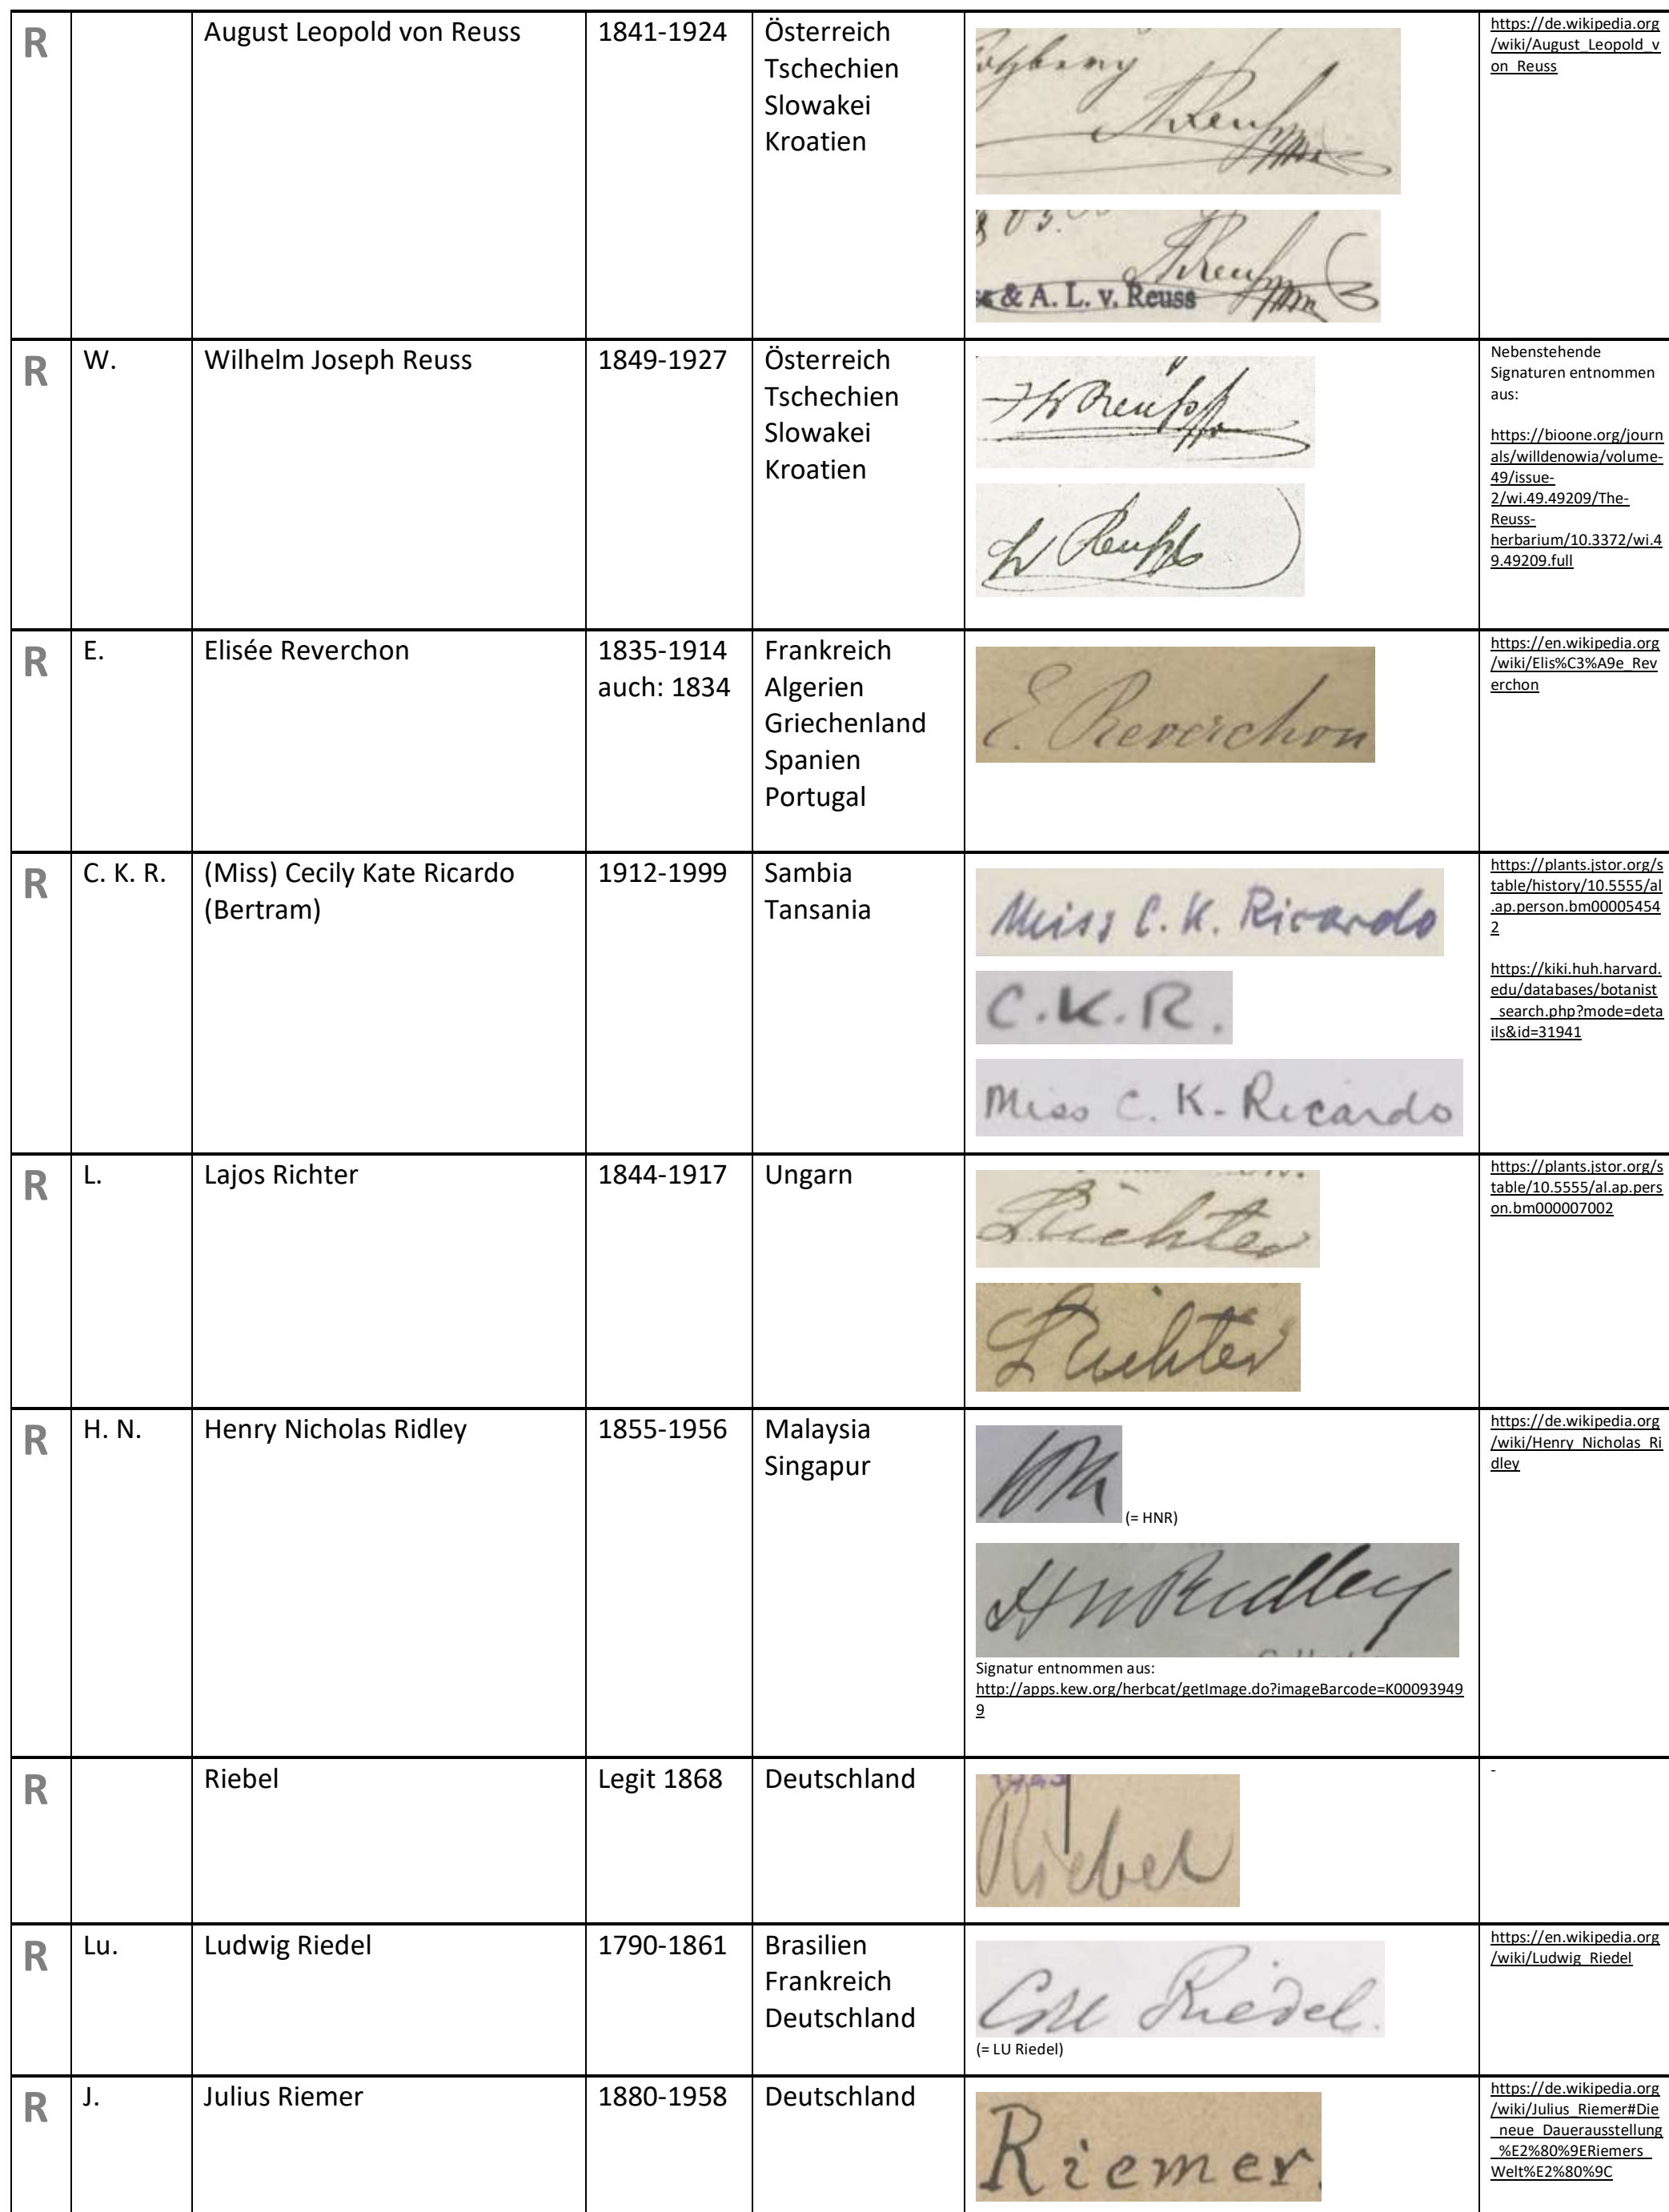 R
August Leopold von Reuss
1841-1924
Österreich
Tschechien
Slowakei
Kroatien
AReuss
AReuss
& A. L. v. Reuss
https://de.wikipedia.org
/wiki/August_Leopold_v
on_Reuss
R
W.
Wilhelm Joseph Reuss
1849-1927
Österreich
Tschechien
Slowakei
Kroatien
W Reuss
Nebenstehende
Signaturen entnommen
aus:
https://bioone.org/journ
als/willdenowia/volume-
49/issue-
2/wi.49.49209/The-
Reuss-
herbarium/10.3372/wi.4
9.49209.full
R
E.
Elisée Reverchon
1835-1914
auch: 1834
Frankreich
Algerien
Griechenland
Spanien
Portugal
E. Reverchon
https://en.wikipedia.org
/wiki/Elis%C3%A9e_Rev
erchon
R
C. K. R.
(Miss) Cecily Kate Ricardo
(Bertram)
1912-1999
Sambia
Tansania
Miss C. K. Ricardo
C.K.R.
Miss C. K. Ricardo
https://plants.jstor.org/s
table/history/10.5555/al
.ap.person.bm00005454
2
https://kiki.huh.harvard.
edu/databases/botanist
_search.php?mode=deta
ils&id=31941
R
L.
Lajos Richter
1844-1917
Ungarn
LRichter
LRichter
https://plants.jstor.org/s
table/10.5555/al.ap.pers
on.bm000007002
R
H. N.
Henry Nicholas Ridley
1855-1956
Malaysia
Singapur
HNR
(= HNR)
HNRidley
Signatur entnommen aus:
http://apps.kew.org/herbcat/getImage.do?imageBarcode=K00093949
9
https://de.wikipedia.org
/wiki/Henry_Nicholas_Ri
dley
R
Riebel
Legit 1868
Deutschland
Riebel
-
R
Lu.
Ludwig Riedel
1790-1861
Brasilien
Frankreich
Deutschland
LU Riedel.
(= LU Riedel)
https://en.wikipedia.org
/wiki/Ludwig_Riedel
R
J.
Julius Riemer
1880-1958
Deutschland
Riemer.
https://de.wikipedia.org
/wiki/Julius_Riemer#Die
_neue_Dauerausstellung
_%E2%80%9ERiemers_
Welt%E2%80%9C